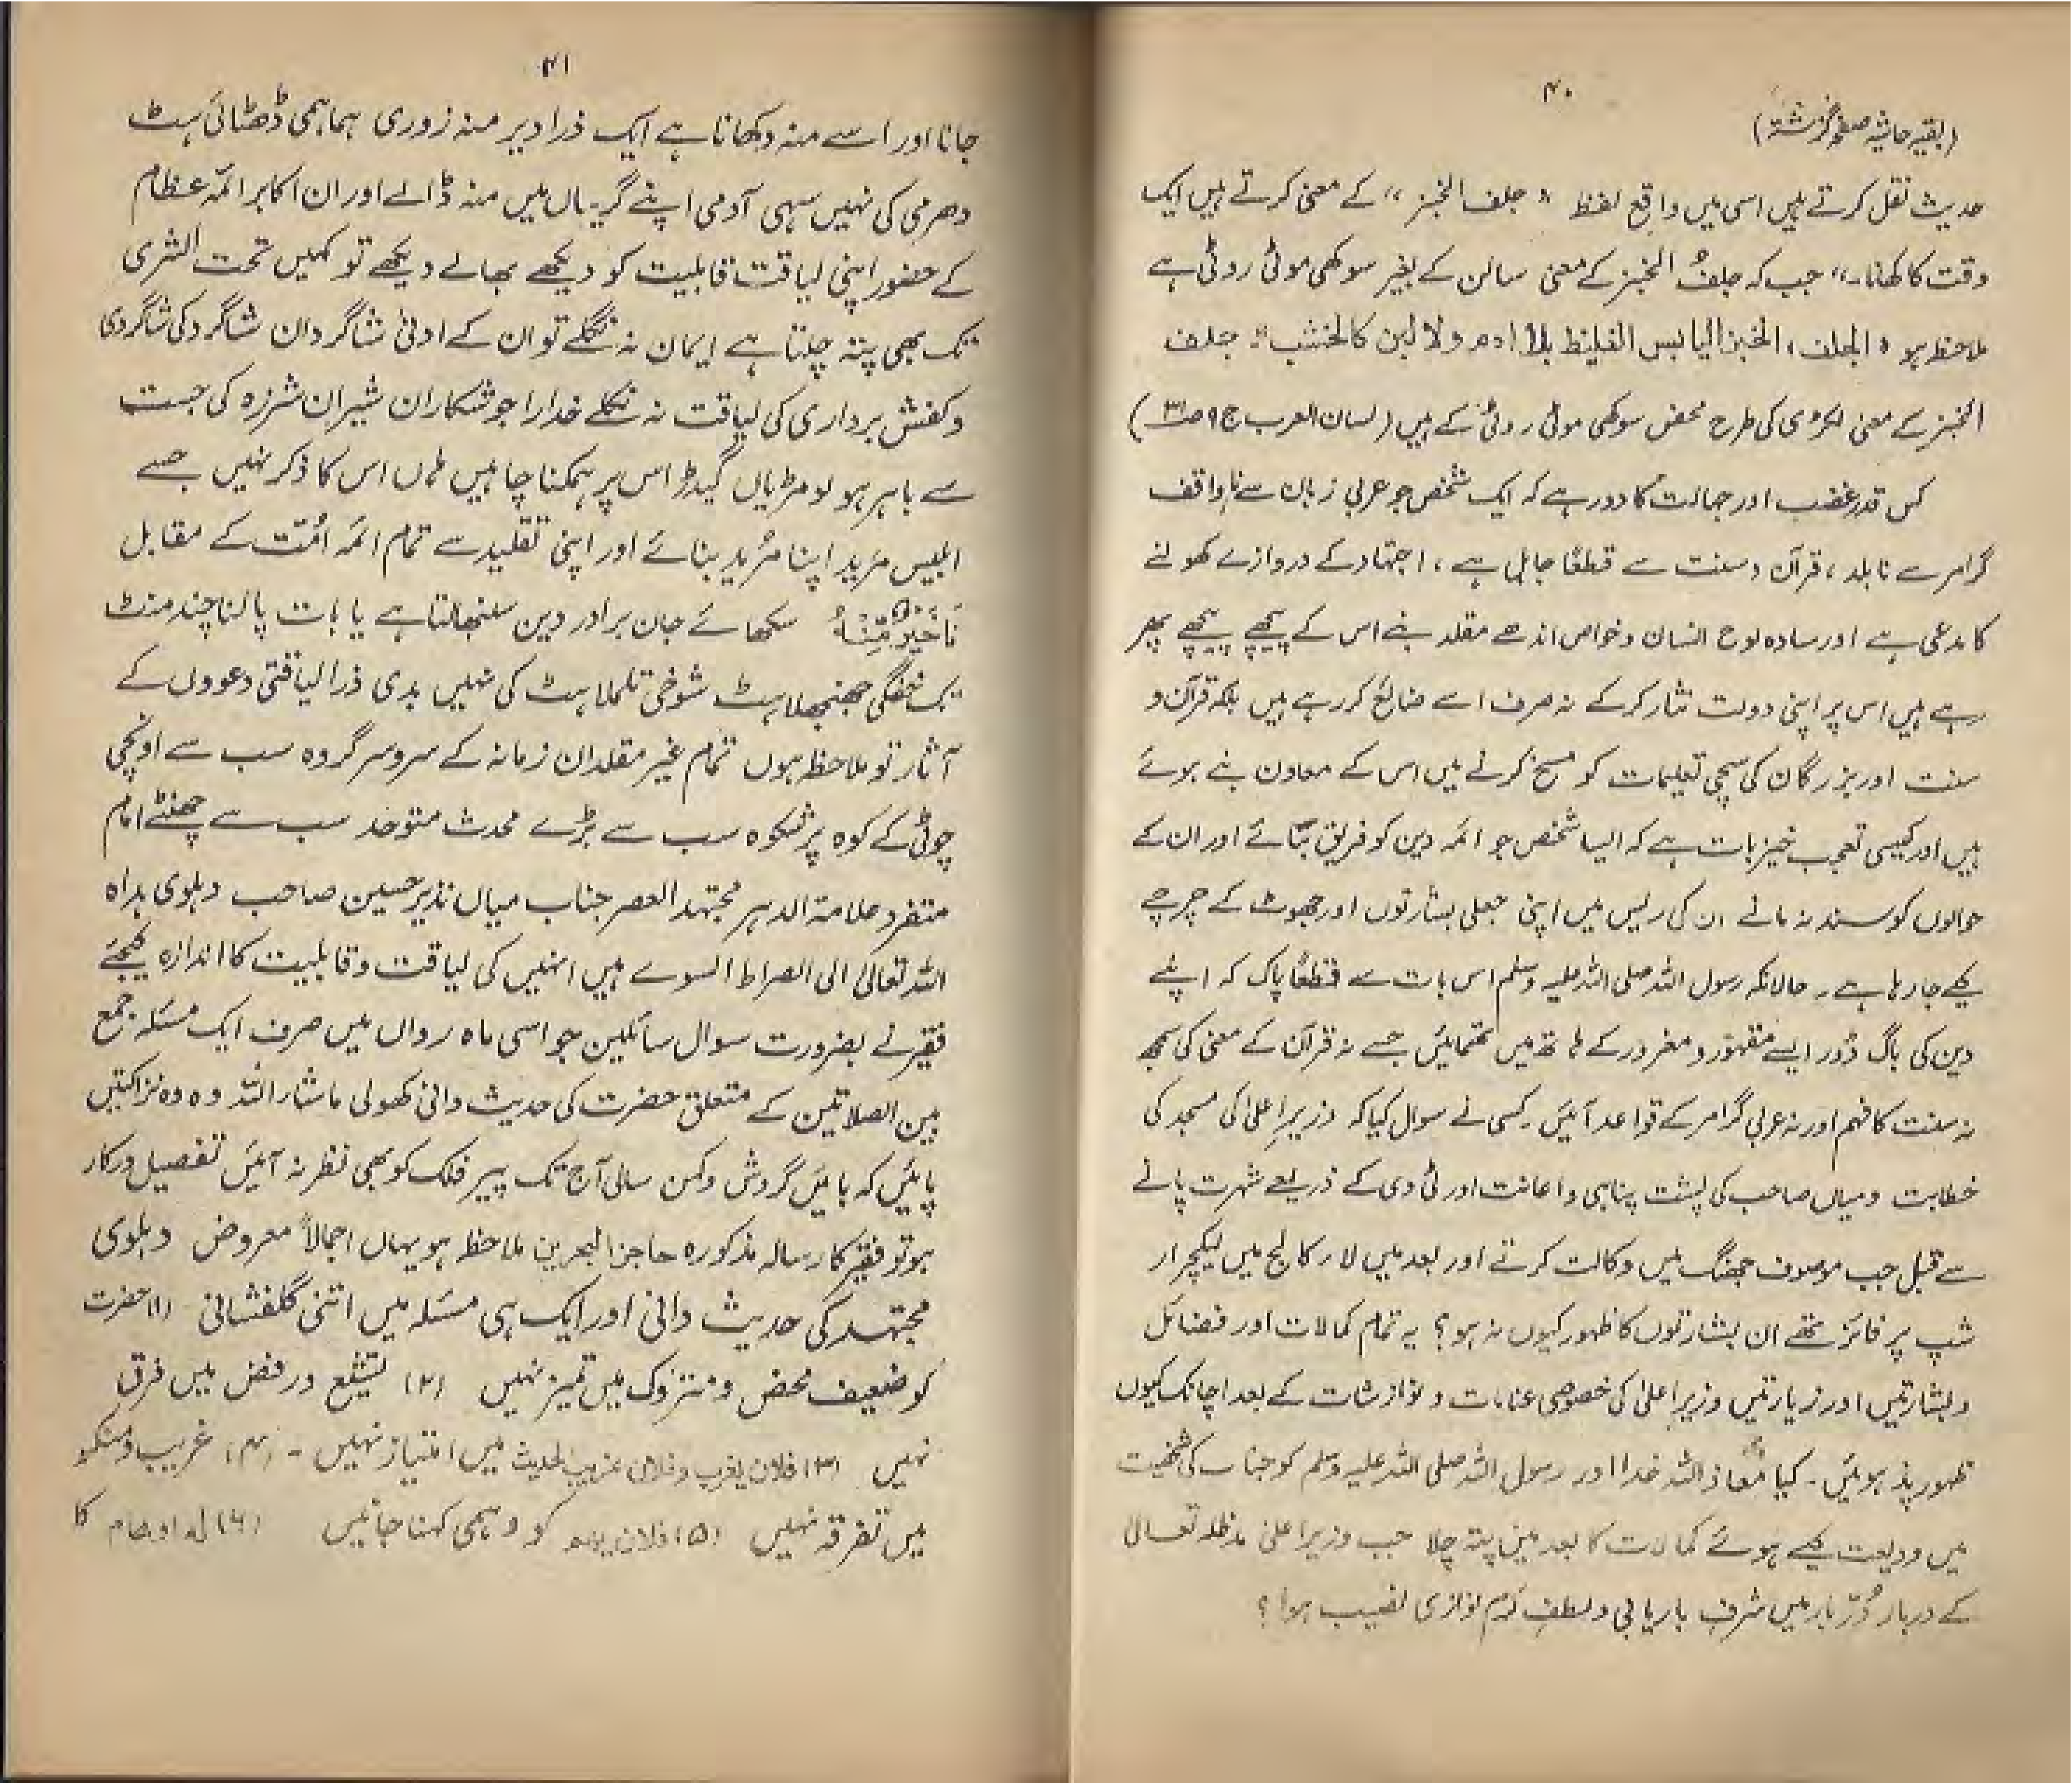 ۴۰
(بقیہ حاشیہ صفحہ گزشتہ)
حدیث نقل کرتے ہیں اسی میں واقع لفظ " جلف الخبز " کے معنی کرتے ہیں ایک
وقت کا کھانا۔" جب کہ جلفُ الخبز کے معنی سالن کے بغیر سوکھی موٹی روٹی ہے
ملاحظہ ہو " الجلف، الخبز الیابس الغلیظ بلا ادم ولا لبن کالخشب " جلف
الخبز کے معنی لکڑی کی طرح محض سوکھی موٹی روٹی کے ہیں (لسان العرب ج ۹ ص۳۱)
کس قدر غضب اور جہالت کا دور ہے کہ ایک شخص جو عربی زبان سے ناواقف
گرامر سے نابلد، قرآن و سنت سے قطعًا جاہل ہے، اجتہاد کے دروازے کھولنے
کا مدعی ہے اور سادہ لوح انسان و خواص اندھے مقلد بنے اس کے پیچھے پیچھے پھر
رہے ہیں اس پر اپنی دولت نثار کر کے نہ صرف اسے ضائع کر رہے ہیں بلکہ قرآن و
سنت اور بزرگان کی سچی تعلیمات کو مسخ کرنے میں اس کے معاون بنے ہوئے
ہیں اور کیسی تعجب خیز بات ہے کہ ایسا شخص جو ائمہ دین کو فریق بتائے اور ان کے
حوالوں کو سند نہ مانے ان کی ریس میں اپنی جعلی بشارتوں اور جھوٹ کے چرچے
کیے جا رہا ہے۔ حالانکہ رسول اللہ صلی اللہ علیہ وسلم اس بات سے قطعًا پاک کہ اپنے
دین کی باگ ڈور ایسے مقہور و مغرور کے ہاتھ میں تھمائیں جسے نہ قرآن کے معنی کی سمجھ
نہ سنت کا فہم اور نہ عربی گرامر کے قواعد آئیں۔ کسی نے سوال کیا کہ وزیر اعلیٰ کی مسجد کی
خطابت و میاں صاحب کی پشت پناہی و اعانت اور ٹی وی کے ذریعے شہرت پانے
سے قبل جب موصوف جھنگ میں وکالت کرتے اور بعد میں لاء کالج میں لیکچرار
شپ پر فائز تھے ان بشارتوں کا ظہور کیوں نہ ہو؟ یہ تمام کمالات اور فضائل
و بشارتیں اور زیارتیں وزیر اعلیٰ کی خصوصی عنایات و نوازشات کے بعد اچانک کیوں
ظہور پذیر ہوئیں۔ کیا معاذ اللہ خدا اور رسول اللہ صلی اللہ علیہ وسلم کو جناب کی شخصیت
میں ودیعت کیے ہوئے کمالات کا بعد میں پتہ چلا جب وزیر اعلیٰ مدظلہ تعالیٰ
کے دربار دُرّ بار میں شرف باریابی و لطف کرم نوازی نصیب ہوا؟
۴۱
جانا اور اسے منہ دکھانا ہے ایک ذرا دیر منہ زوری ہماہمی ڈھٹائی ہٹ
دھرمی کی نہیں سہی آدمی اپنے گریباں میں منہ ڈالے اور ان اکابر ائمّہ عظام
کے حضور اپنی لیاقت قابلیت کو دیکھے بھالے دیکھے تو کہیں تحت الثری
تک بھی پتہ چلتا ہے ایمان نہ نگلے تو ان کے ادنیٰ شاگردان شاگرد کی شاگردی
و کفش برداری کی لیاقت نہ نکلے خدارا جو شکاران شیران شرزہ کی جست
سے باہر ہو لومڑیاں گیدڑ اس پر ہمکنا چاہیں ہاں اس کا ذکر نہیں جسے
ابلیس مرید اپنا مُرید بنائے اور اپنی تقلید سے تمام ائمہ اُمّت کے مقابل
اَنَا خَیْرٌ مِّنْهُ سکھائے جان برادر دین سنبھالتا ہے یا بات پالنا چند منٹ
تک خفگی جھنجھلاہٹ شوخی تلملاہٹ کی نہیں بدی ذرا لیاقتی دعووں کے
آثار تو ملاحظہ ہوں تمام غیر مقلدان زمانہ کے سر و سر گروہ سب سے اونچی
چوٹی کے کوہ پر شکوہ سب سے بڑے محدث متوحد سب سے چھنٹے امام
متفرد علامۃ الدہر مجتہد العصر جناب میاں نذیر حسین صاحب دہلوی ہداہ
اللہ تعالیٰ الی الصراط السوے ہیں انہیں کی لیاقت و قابلیت کا اندازہ کیجئے
فقیر نے بضرورت سوال سائلین جو اسی ماہ رواں میں صرف ایک مسئلہ جمع
بین الصلاتین کے متعلق حضرت کی حدیث دانی کھولی ماشاء اللہ وہ وہ نزاکتیں
پائیں کہ بایں گردش و کہن سالی آج تک پیر فلک کو بھی نظر نہ آئیں تفصیل درکار
ہو تو فقیر کا رسالہ مذکورہ حاجز البحرین ملاحظہ ہو یہاں اجمالاً معروض دہلوی
مجتہد کی حدیث دانی اور ایک ہی مسئلہ میں اتنی گلفشانی (۱) حضرت
کو ضعیف محض و متروک میں تمیز نہیں (۲) تشیع و رفض میں فرق
نہیں (۳) فلان یغرب و فلان غریب الحدیث میں امتیاز نہیں ۔ (۴) غریب و منکر
میں تفرقہ نہیں (۵) فلان یھم کو وہمی کہنا جانیں (۶) لہ اوھام کا